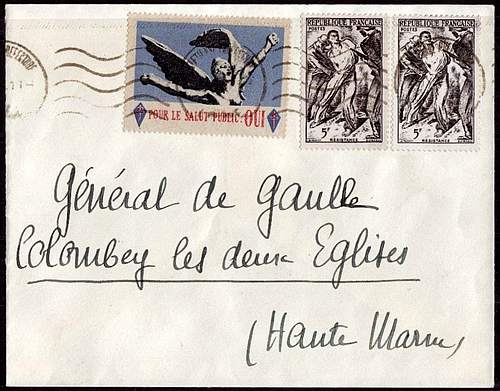 POUR LE SALUT PUBLIC: OUI
RÉPUBLIQUE FRANÇAISE
POSTES
5F
RÉSISTANCE
RÉPUBLIQUE FRANÇAISE
POSTES
5F
RÉSISTANCE
Général de Gaulle
Colombey les deux Eglises
(Haute Marne)